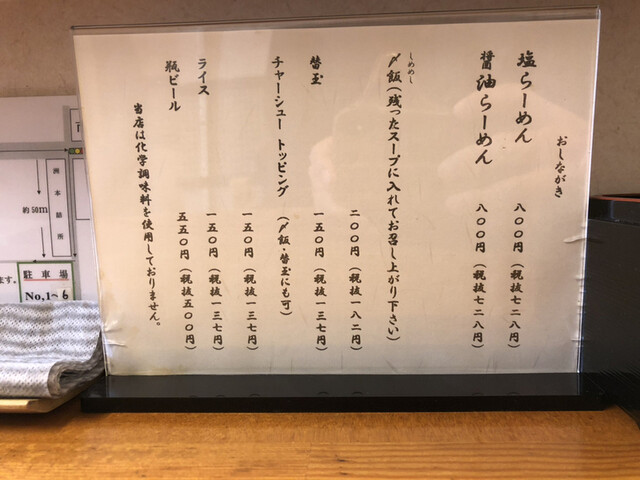 おしながき
塩らーめん 八〇〇円（税抜七二八円）
醤油らーめん 八〇〇円（税抜七二八円）
しめめし
〆飯（残ったスープに入れてお召し上がり下さい）
二〇〇円（税抜一八二円）
替玉 一五〇円（税抜一三七円）
チャーシュートッピング（〆飯・替玉にも可）
一五〇円（税抜一三七円）
ライス 一五〇円（税抜一三七円）
瓶ビール 五五〇円（税抜五〇〇円）
当店は化学調味料を使用しておりません。
約50m
駐車場
No,1~6
ます。